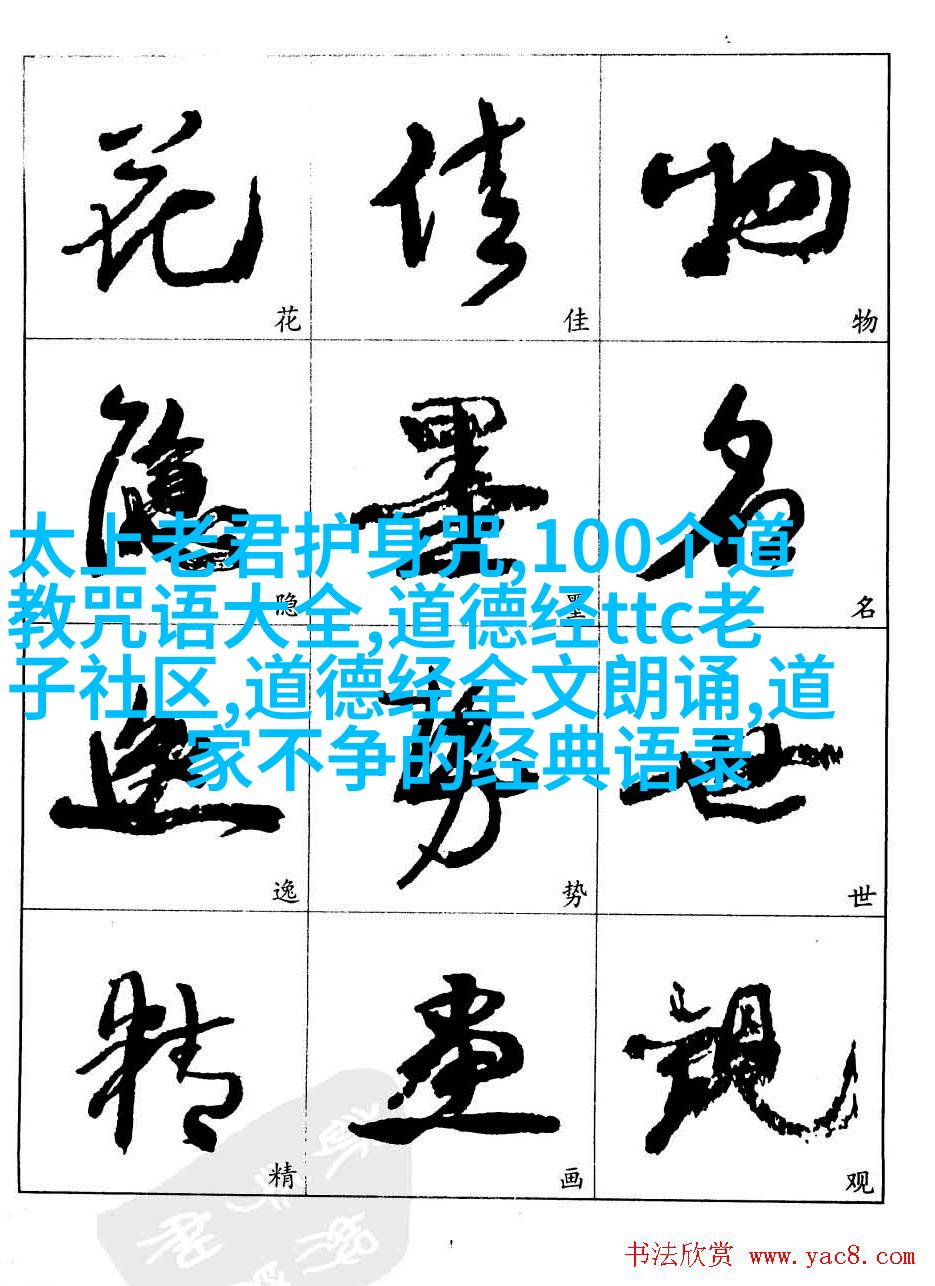 花 佳 物
花 佳 物
隐 墨 名
隐 墨 名
太上老君护身咒,100个道
教咒语大全,道德经ttc老
子社区,道德经全文朗诵,道
家不争的经典语录
逸 势 世
逸 势 世
精 画 观
精 画 观
书法欣赏 www.yac8.com